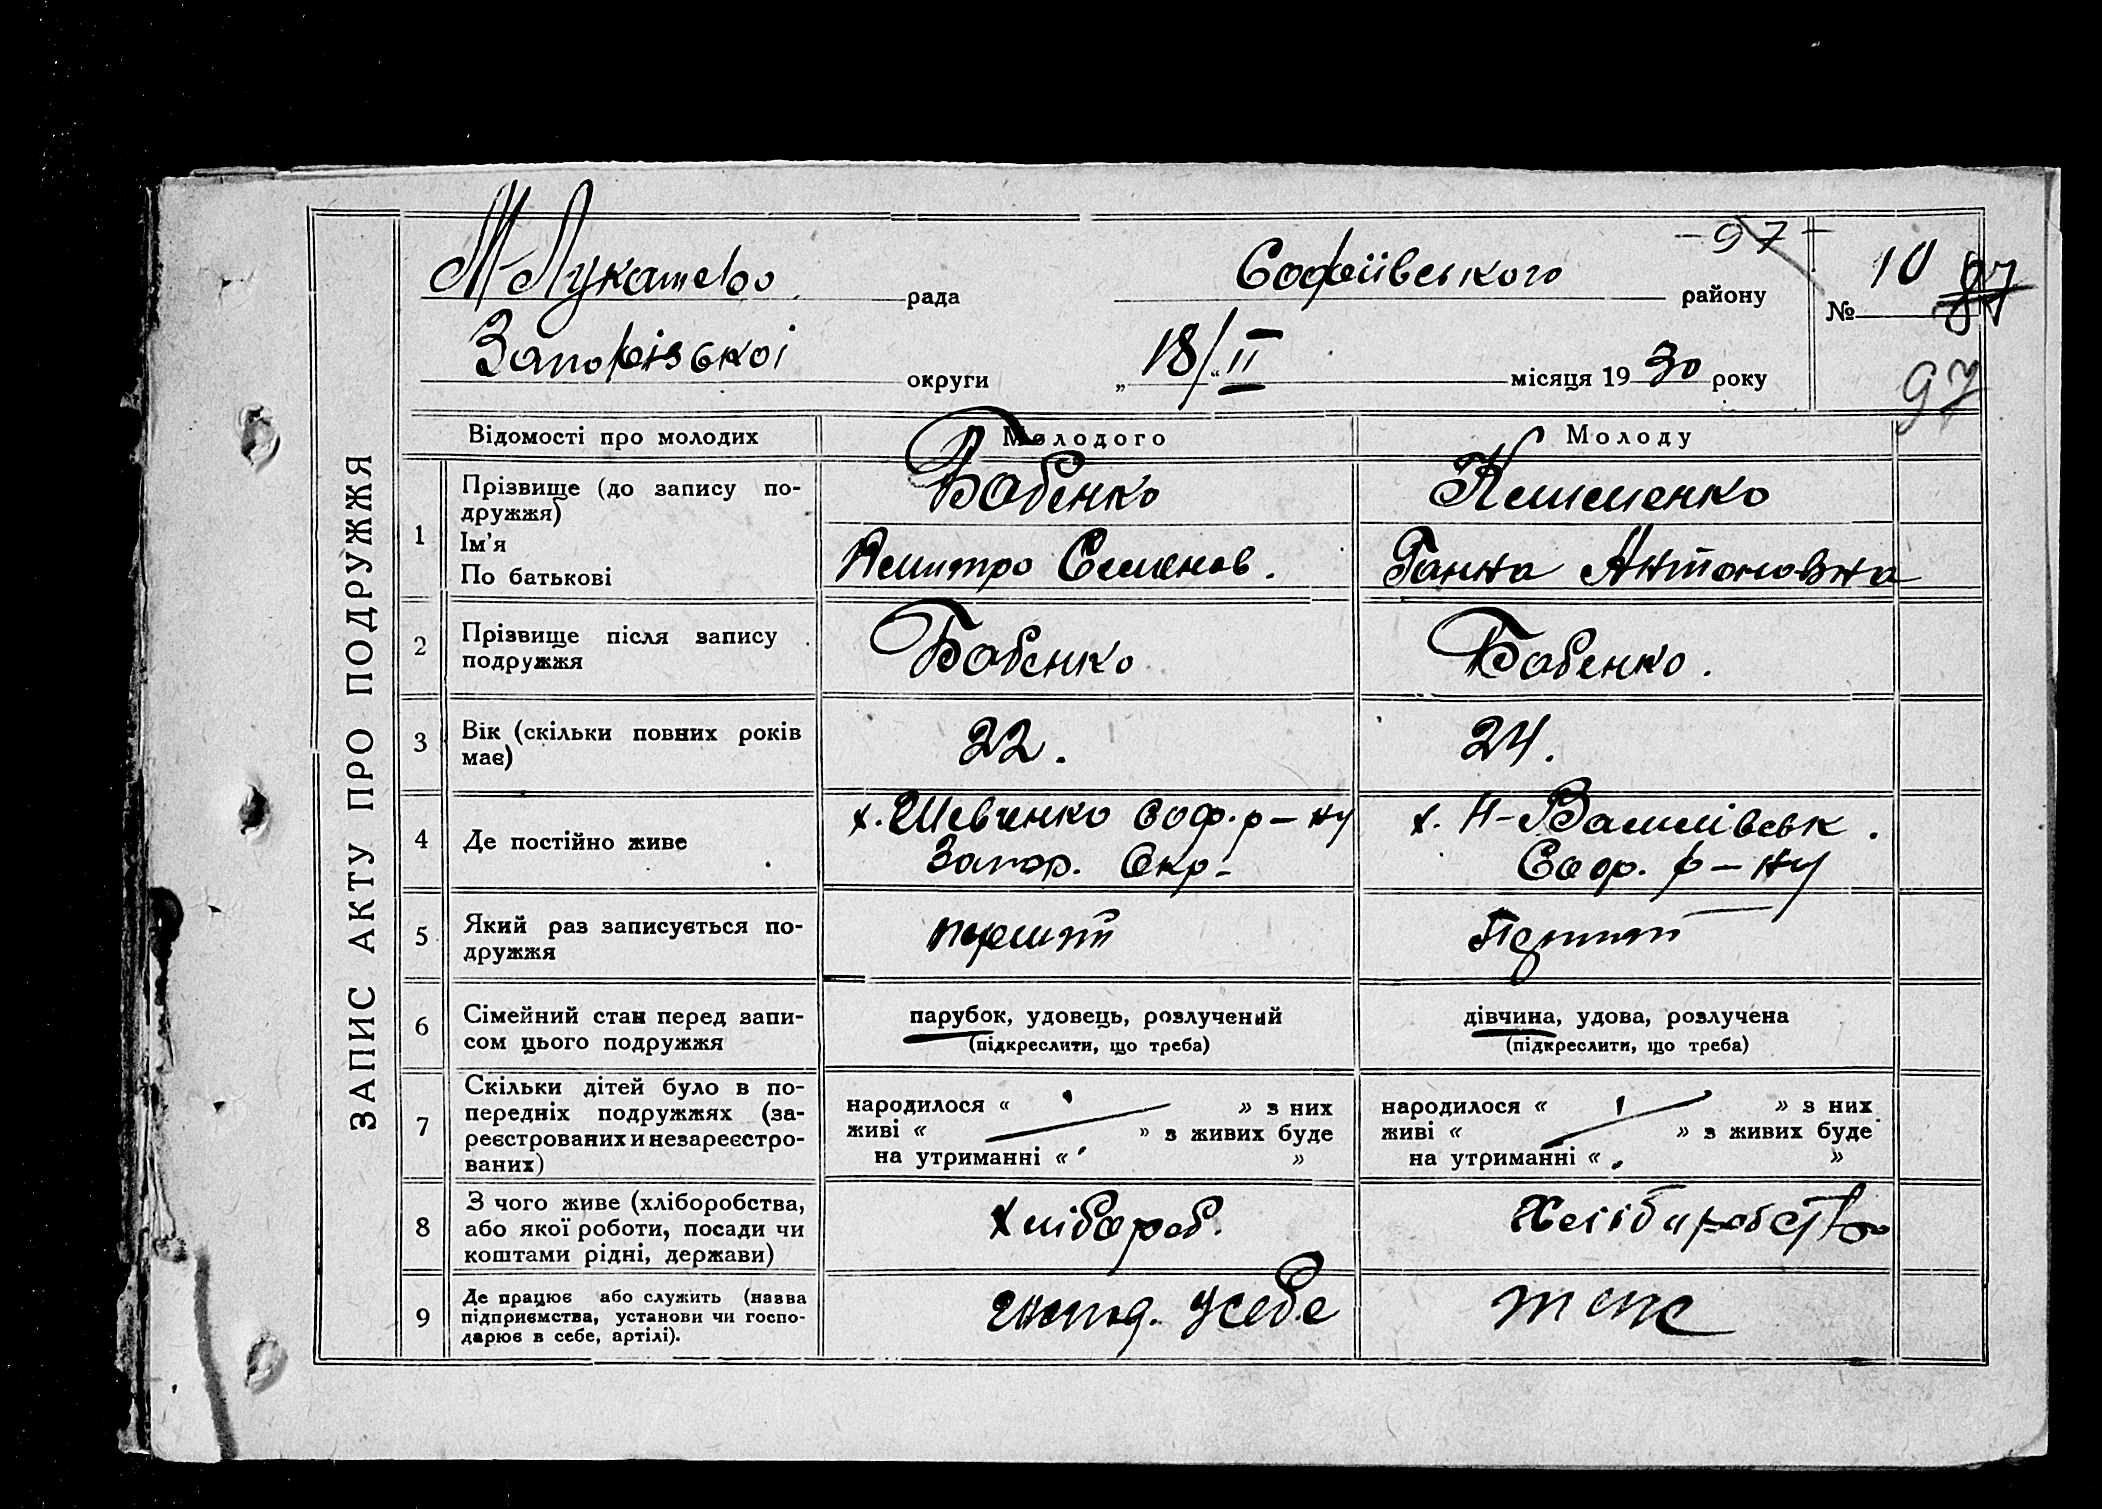 ЗАПИС АКТУ ПРО ПОДРУЖЖЯ
М-Лукашево рада Софиівського району
- 97 -
№ 10
97
Запорізької округи „18/“ II місяця 1930 року
Відомості про молодих Молодого Молоду
1 Прізвище (до запису по-
дружжя)
Ім'я
По батькові
Бабенко
Дмитро Семенов.
Клименко
Ганна Антоновна
2 Прізвище після запису
подружжя
Бабенко
Бабенко.
3 Вік (скільки повних років
має)
22.
24.
4 Де постійно живе
х. Шевченко Соф. р-ну
Запор. Окр-
х. Н-Василівськ.
Соф. р-ну
5 Який раз записується по-
дружжя
перший
Перший
6 Сімейний стан перед запи-
сом цього подружжя
парубок, удовець, розлучений
(підкреслити, що треба)
дівчина, удова, розлучена
(підкреслити, що треба)
7 Скільки дітей було в по-
передніх подружжях (за-
реєстрованих и незареєстро-
ваних)
народилося « » з них
живі « » з живих буде
на утриманні « »
народилося « » з них
живі « » з живих буде
на утриманні « »
8 З чого живе (хліборобства,
або якої роботи, посади чи
коштами рідні, держави)
Хлібороб.
Хліборобство
9 Де працює або служить (назва
підприємства, установи чи госпо-
дарює в себе, артілі).
у себе
тоже